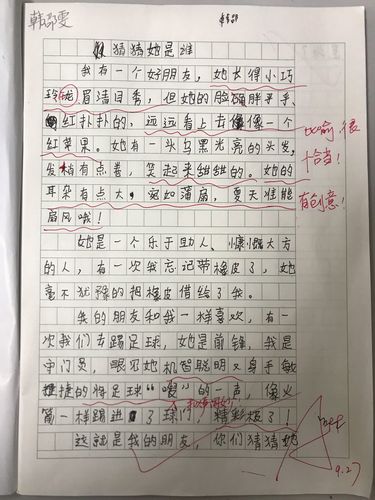 韩
猜猜她是谁
我有一个好朋友，她长得小巧
玲珑眉清目秀，但她的脸颊胖乎乎、
红扑扑的，远远看上去像一个
红苹果。她有一头乌黑光亮的头发，
发梢有点卷，笑起来甜甜的。她的
耳朵有点大，宛如蒲扇，夏天准能
扇风哦！
比喻很
恰当！
有创意！
她是一个乐于助人、慷慨大方
的人，有一次我忘记带橡皮了，她
毫不犹豫的把橡皮借给了我。
我的朋友和我一样喜欢，有一
次我们去踢足球，她是前锋，我是
守门员，眼见她机智聪明又身手敏
捷的将足球“嗖”的一声，像火
箭一样踢进了球门，精彩极了！
这就是我的朋友，你们猜猜她
9.27